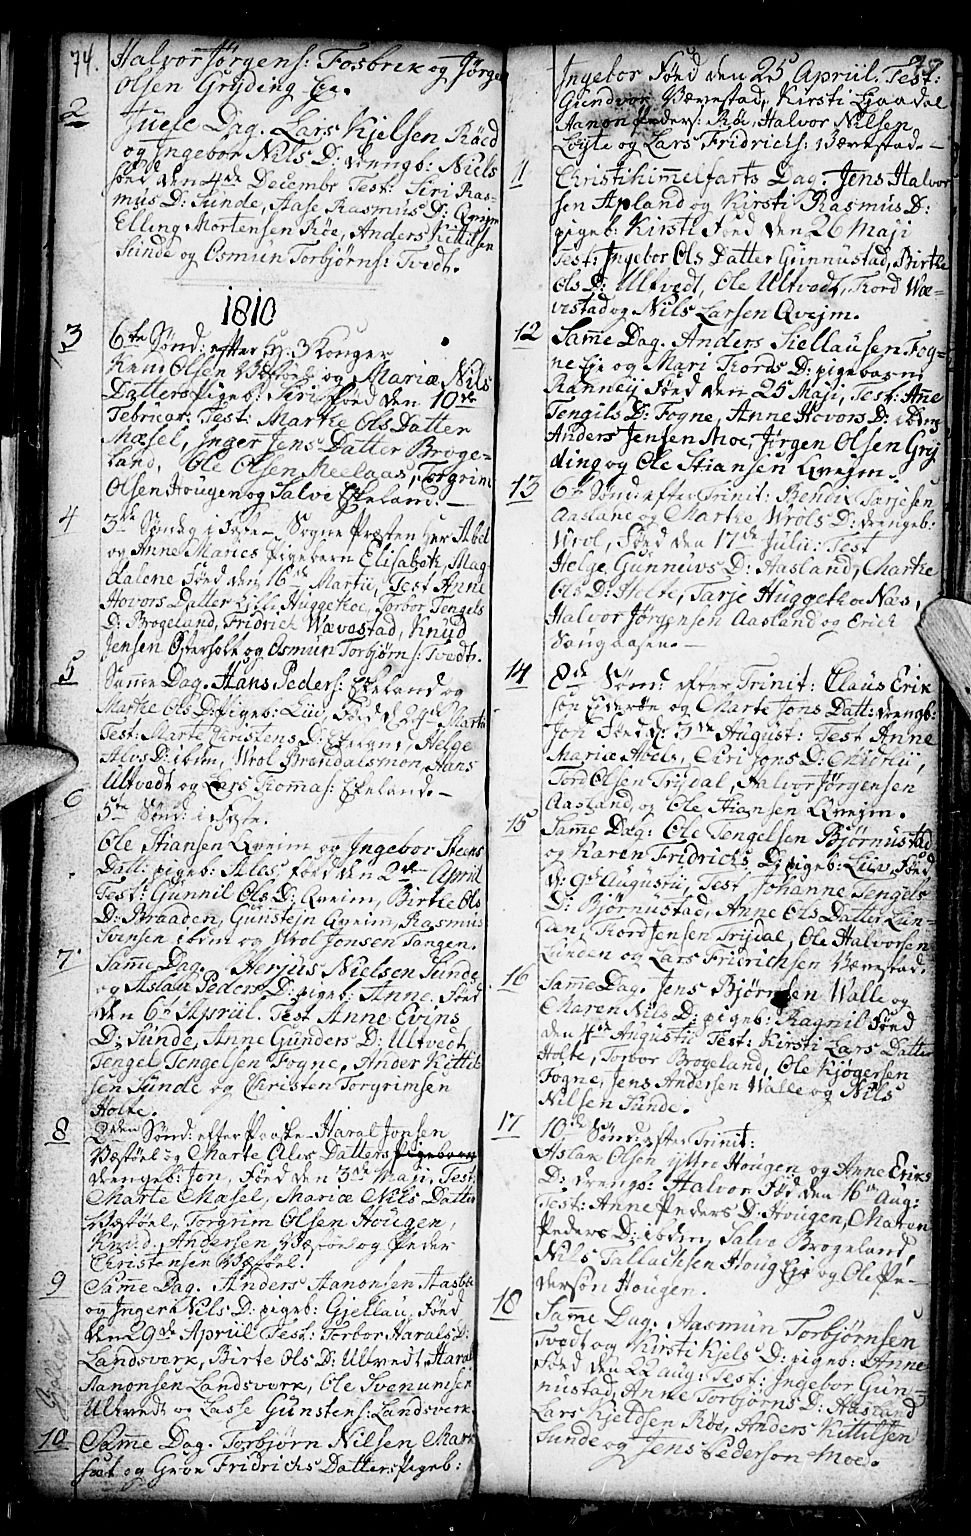 74.
Halvor Jørgens: Fosbrek og Jørgen
Olsen Gryding Eje.
2
Juule Dag. Lars Kjelsen Röed
og Ingebor Nils D: drengb: Niels
föed den 4de Decembr Test: Siri Ras-
mus D: Sunde, Aase Rasmus D: Qvejm
Elling Mortensen Röe, Anders Kittilsen
Sunde og Osmun Torbjørns: Tvedt.
1810
3
6te Sönd: efter H. 3 Konger
Knud Olsen Væsföel og Mariæ Nils
Datters Pigeb: Siri föed den 10de
Februar: Test: Marthe Ols Datter
Mæsel, Inger Jens Datter Broge-
land, Ole Olsen Meelaas, Torgrim
Olsen Hougen og Salve Ekeland. —
4
3die Söndag i Faste — Sogne Præsten Her Abel
og Anne Maries Pigebarn Elisabeth Mag-
dalene Föed den 16de Martii, Test Anne
Hovors Datter Huggethoe, Torbor Tengels
D: Brogeland, Fridrich Wævestad, Knud
Jensen Østerholt og Osmun Torbjørns: Tvedt.
5
Samme Dag. Hans Peders: Ekeland og
Marthe Ols D: Pigeb: Liv, Föed d 24de Martii
Test: Marte Christens D: Ekeland, Helge
Alvs D: ibidm, Wrol Brændalsmon, Hans
Ultvedt og Lars Thomas: Ekeland. —
6
5te Sönd: i Faste.
Ole Stiansen Qveim og Ingebor Steens
Datt: pigeb: Aslas, föed den 2de April
Test: Gunnil Ols D: Qveim, Birthe Ols
D: Braaden, Gunstejn Qveim, Rasmus
Svensen ibidm og Wrol Jonsen Tangen.
7
Samme Dag. Herjus Nielsen Sunde
og Aslau Peders D: pigeb: Anne. Föed
den 6te Apriil. Test Anne Evins
D: Sunde, Anne Gunders D: Ultvedt
Tengel Tengelsen Fogne, Ander Kittil-
sen Sunde og Christen Torgrimsen
Holte.
8
2den Sönd: efter Paaske — Haral Jonsen
Væsföel og Marte Alvs Datters Pigebarn
drengeb: Jon, Föed den 3de Maji, Test
Marte Mæsel, Mariæ Nils Datter
Væsföel, Torgrim Olsen Hougen,
Knud Andersen Væsföel og Peder
Christensen Væsföel.
9
Samme Dag. Anders Aanonsen Aasbøe
og Ingera Nils D: pigeb: Gjellau, Föed
den 29de Apriil Test: Torbor Harals D:
Landsverk, Birte Ols D: Ultvedt, Haral
Aanonsen Landsverk, Ole Svenumsen
Ultvedt og Lasse Gunstens: Landsverk
10
Samme Dag. Torbjørn Nilsen Mark-
sæt og Groe Fridrichs Datters Pigeb:
Ingebor Föed den 25 Apriil. Test:
Gundvor Værestad, Kirsti Ljaadal
Aanon Peders: Röe, Halvor Nilsen
Løgte og Lars Fridrichs: Værestad. —
11
Christi himelfarts Dag. Jens Halvor-
sen Apland og Kirsti Rasmus D:
pigeb: Kirsti Föed den 26 Maji
Test: Ingebor Ols Datter Gunnustad, Birthe
Ols D: Ultvedt, Ole Ultvedt, Tord Wæ-
vestad og Nils Larsen Qvejm.
12
Samme Dag. Anders Siellausen Fog-
ne Eje og Mari Tords D: pigebarn
Ranneij Föed den 25 Maji, Test: Anne
Tengils D: Fogne, Anne Hovors D: ibidm
Anders Jensen Moe, Jørgen Olsen Gry
ding og Ole Stiansen Qvejm.
13
6te Sönd: efter Trinit: Bentix Tarjesen
Aaslane og Marthe Wrols D: drengeb:
Wrol, Föed den 17de Julii: Test
Helge Gunnuvs D: Aasland, Marthe
Ols D: Holte, Tarje Huggethoe Næs,
Halvor Jørgensen Aasland og Erich
Vangaasen. —
14
8de Sönd: efter Trinit: Claus Erik
søn og Marte Jons Datt: drengb:
Jon Föed d: 5te August: Test Anne
Marie Abels, Siri Jons D:
Tord Olsen Trijdal, Halvor Jørgensen
Aasland og Ole Stiansen Qvejm.
15
Samme Dag: Ole Tengelsen Bjørnustad
og Karen Fridrichs D: pigeb: Liv, Föed
d: 9de Augustii, Test Johanne Tengels
D: Bjørnustad, Anne Ols Datter Lun-
den, Tord Jensen Trijdal, Ole Halvorsen
Lunden og Lars Fridrichsen Værestad.
16
Samme Dag. Jens Bjørnsen Walle og
Maren Nils D: pigeb: Ragnil Föed
den 4de Augustii Test: Kirsti Lars Datter
Holte, Torbor Brogeland, Ole Kjøgersen
Fogne, Jens Andersen Walle og Nils
Nilsen Sunde.
17
10de Sönd: efter Trinit:
Aslak Olsen ijttre Hougen og Anne Eriks
D: drengb: Halvor Föd den 16de Aug:
Test: Anne Peders D: Hougen, Maren
Peders D: ibidm, Salve Brogeland,
Nils Tallachsen Houg Eje og Ole Pe-
dersøn Hougen.
18
Samme Dag. Aasmun Torbjørnsen
Tvedt og Kirsti Kjels D: pigeb: Anne
Föed den 22 aug: Test: Ingebor Gun-
nustad, Anne Torbjørns D: Aasland
Lars Kjeldsen Röe, Anders Kittilsen
Sunde og Jens Pedersøn Moe.